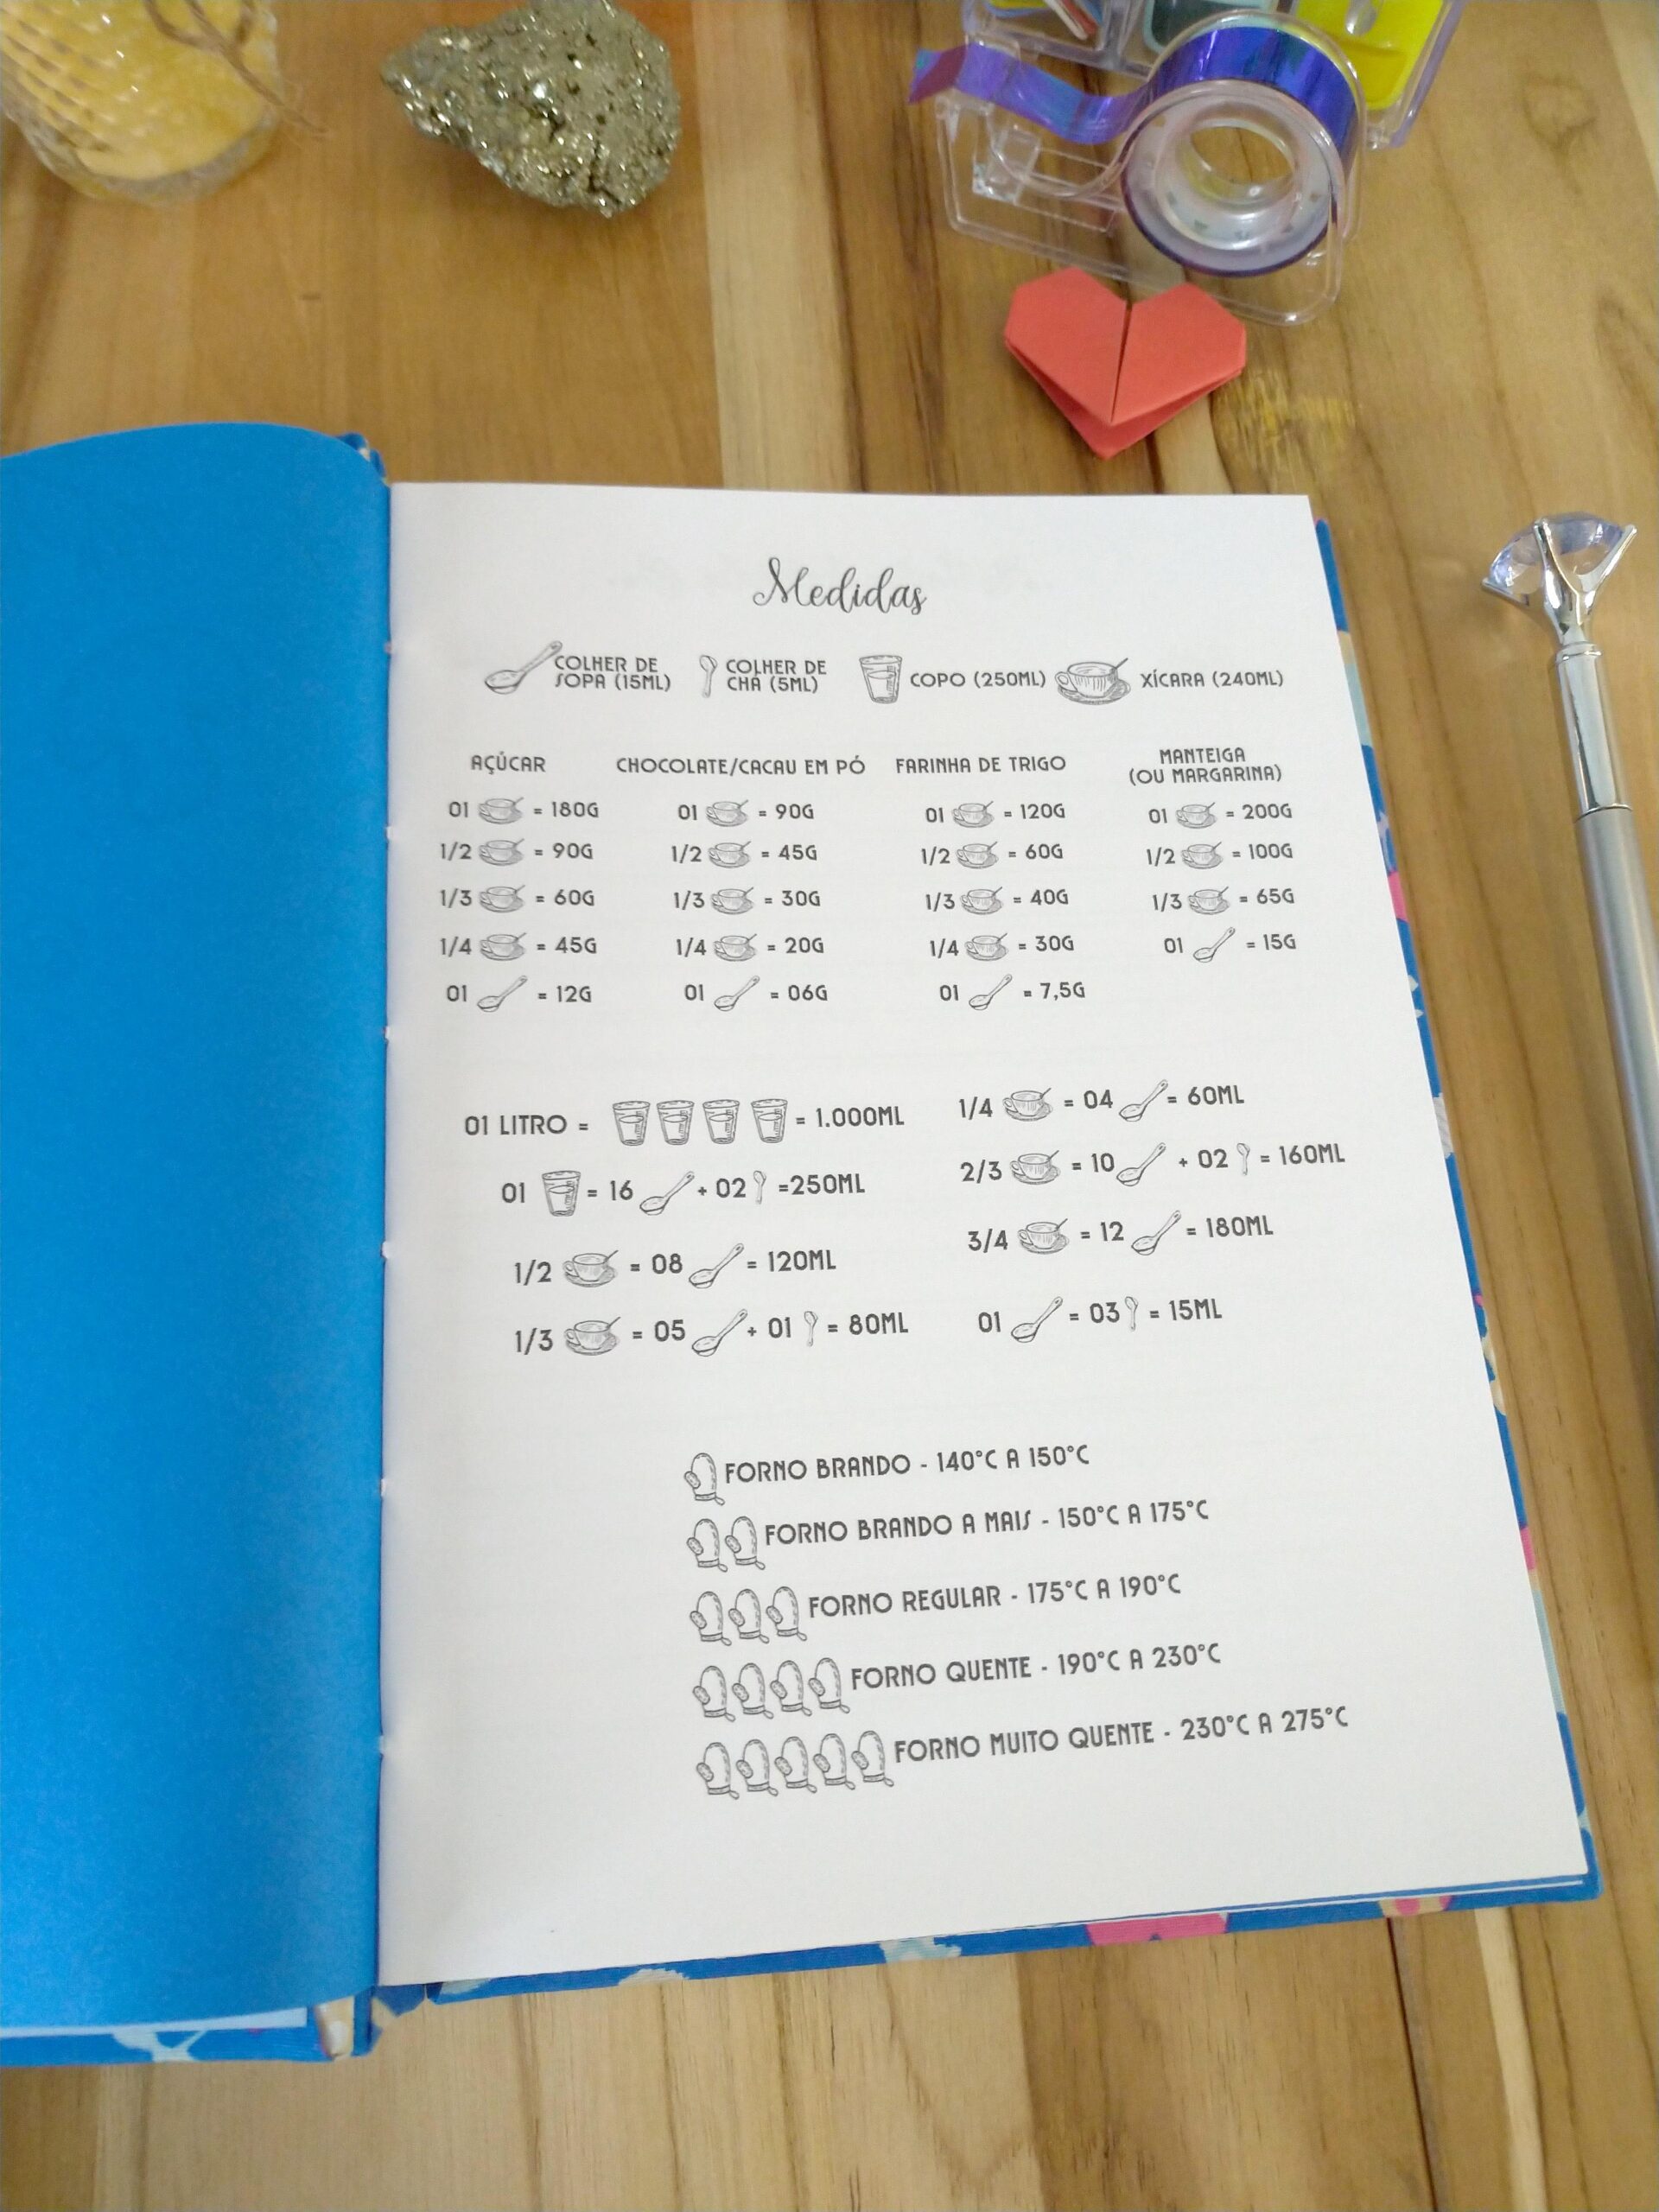 Medidas
COLHER DE SOPA (15ML) COLHER DE CHÁ (5ML) COPO (250ML) XÍCARA (240ML)
AÇÚCAR CHOCOLATE/CACAU EM PÓ FARINHA DE TRIGO MANTEIGA (OU MARGARINA)
01 = 180G 01 = 90G 01 = 120G 01 = 200G
1/2 = 90G 1/2 = 45G 1/2 = 60G 1/2 = 100G
1/3 = 60G 1/3 = 30G 1/3 = 40G 1/3 = 65G
1/4 = 45G 1/4 = 20G 1/4 = 30G 01 = 15G
01 = 12G 01 = 06G 01 = 7,5G
01 LITRO = = 1.000ML
01 = 16 + 02 =250ML
1/2 = 08 = 120ML
1/3 = 05 + 01 = 80ML
1/4 = 04 = 60ML
2/3 = 10 + 02 = 160ML
3/4 = 12 = 180ML
01 = 03 = 15ML
FORNO BRANDO - 140°C A 150°C
FORNO BRANDO A MAIS - 150°C A 175°C
FORNO REGULAR - 175°C A 190°C
FORNO QUENTE - 190°C A 230°C
FORNO MUITO QUENTE - 230°C A 275°C